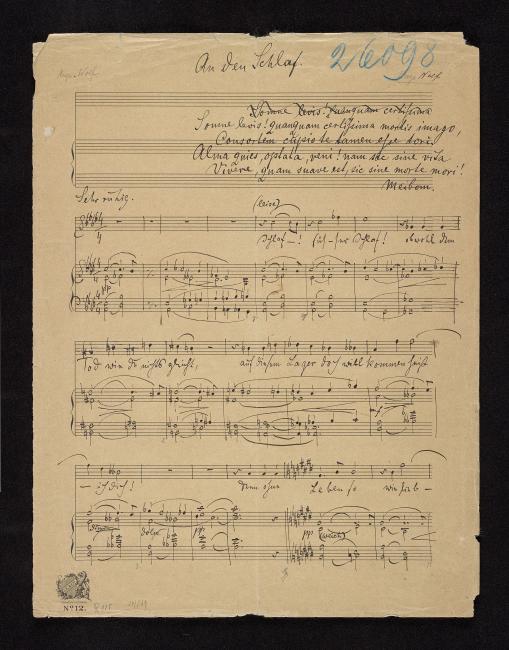 An den Schlaf.
26098
Hugo Wolf
Wolf
Somne levis! quanquam certissima
Somne levis! quanquam certissima mortis imago,
Consortem cupio te tamen esse tori.
Alma quies, optata, veni! nam sic sine vita
Vivere, quam suave est, sic sine morte mori!
Meibom.
Sehr ruhig.
(leise)
Schlaf! süßer Schlaf! obwohl dem
Tod wie du nichts gleicht, auf diesem Lager doch willkommen heiß
ich dich! Denn ohne Leben so wie lieb-
dolce
pp
pp (weich)
Nº 12.